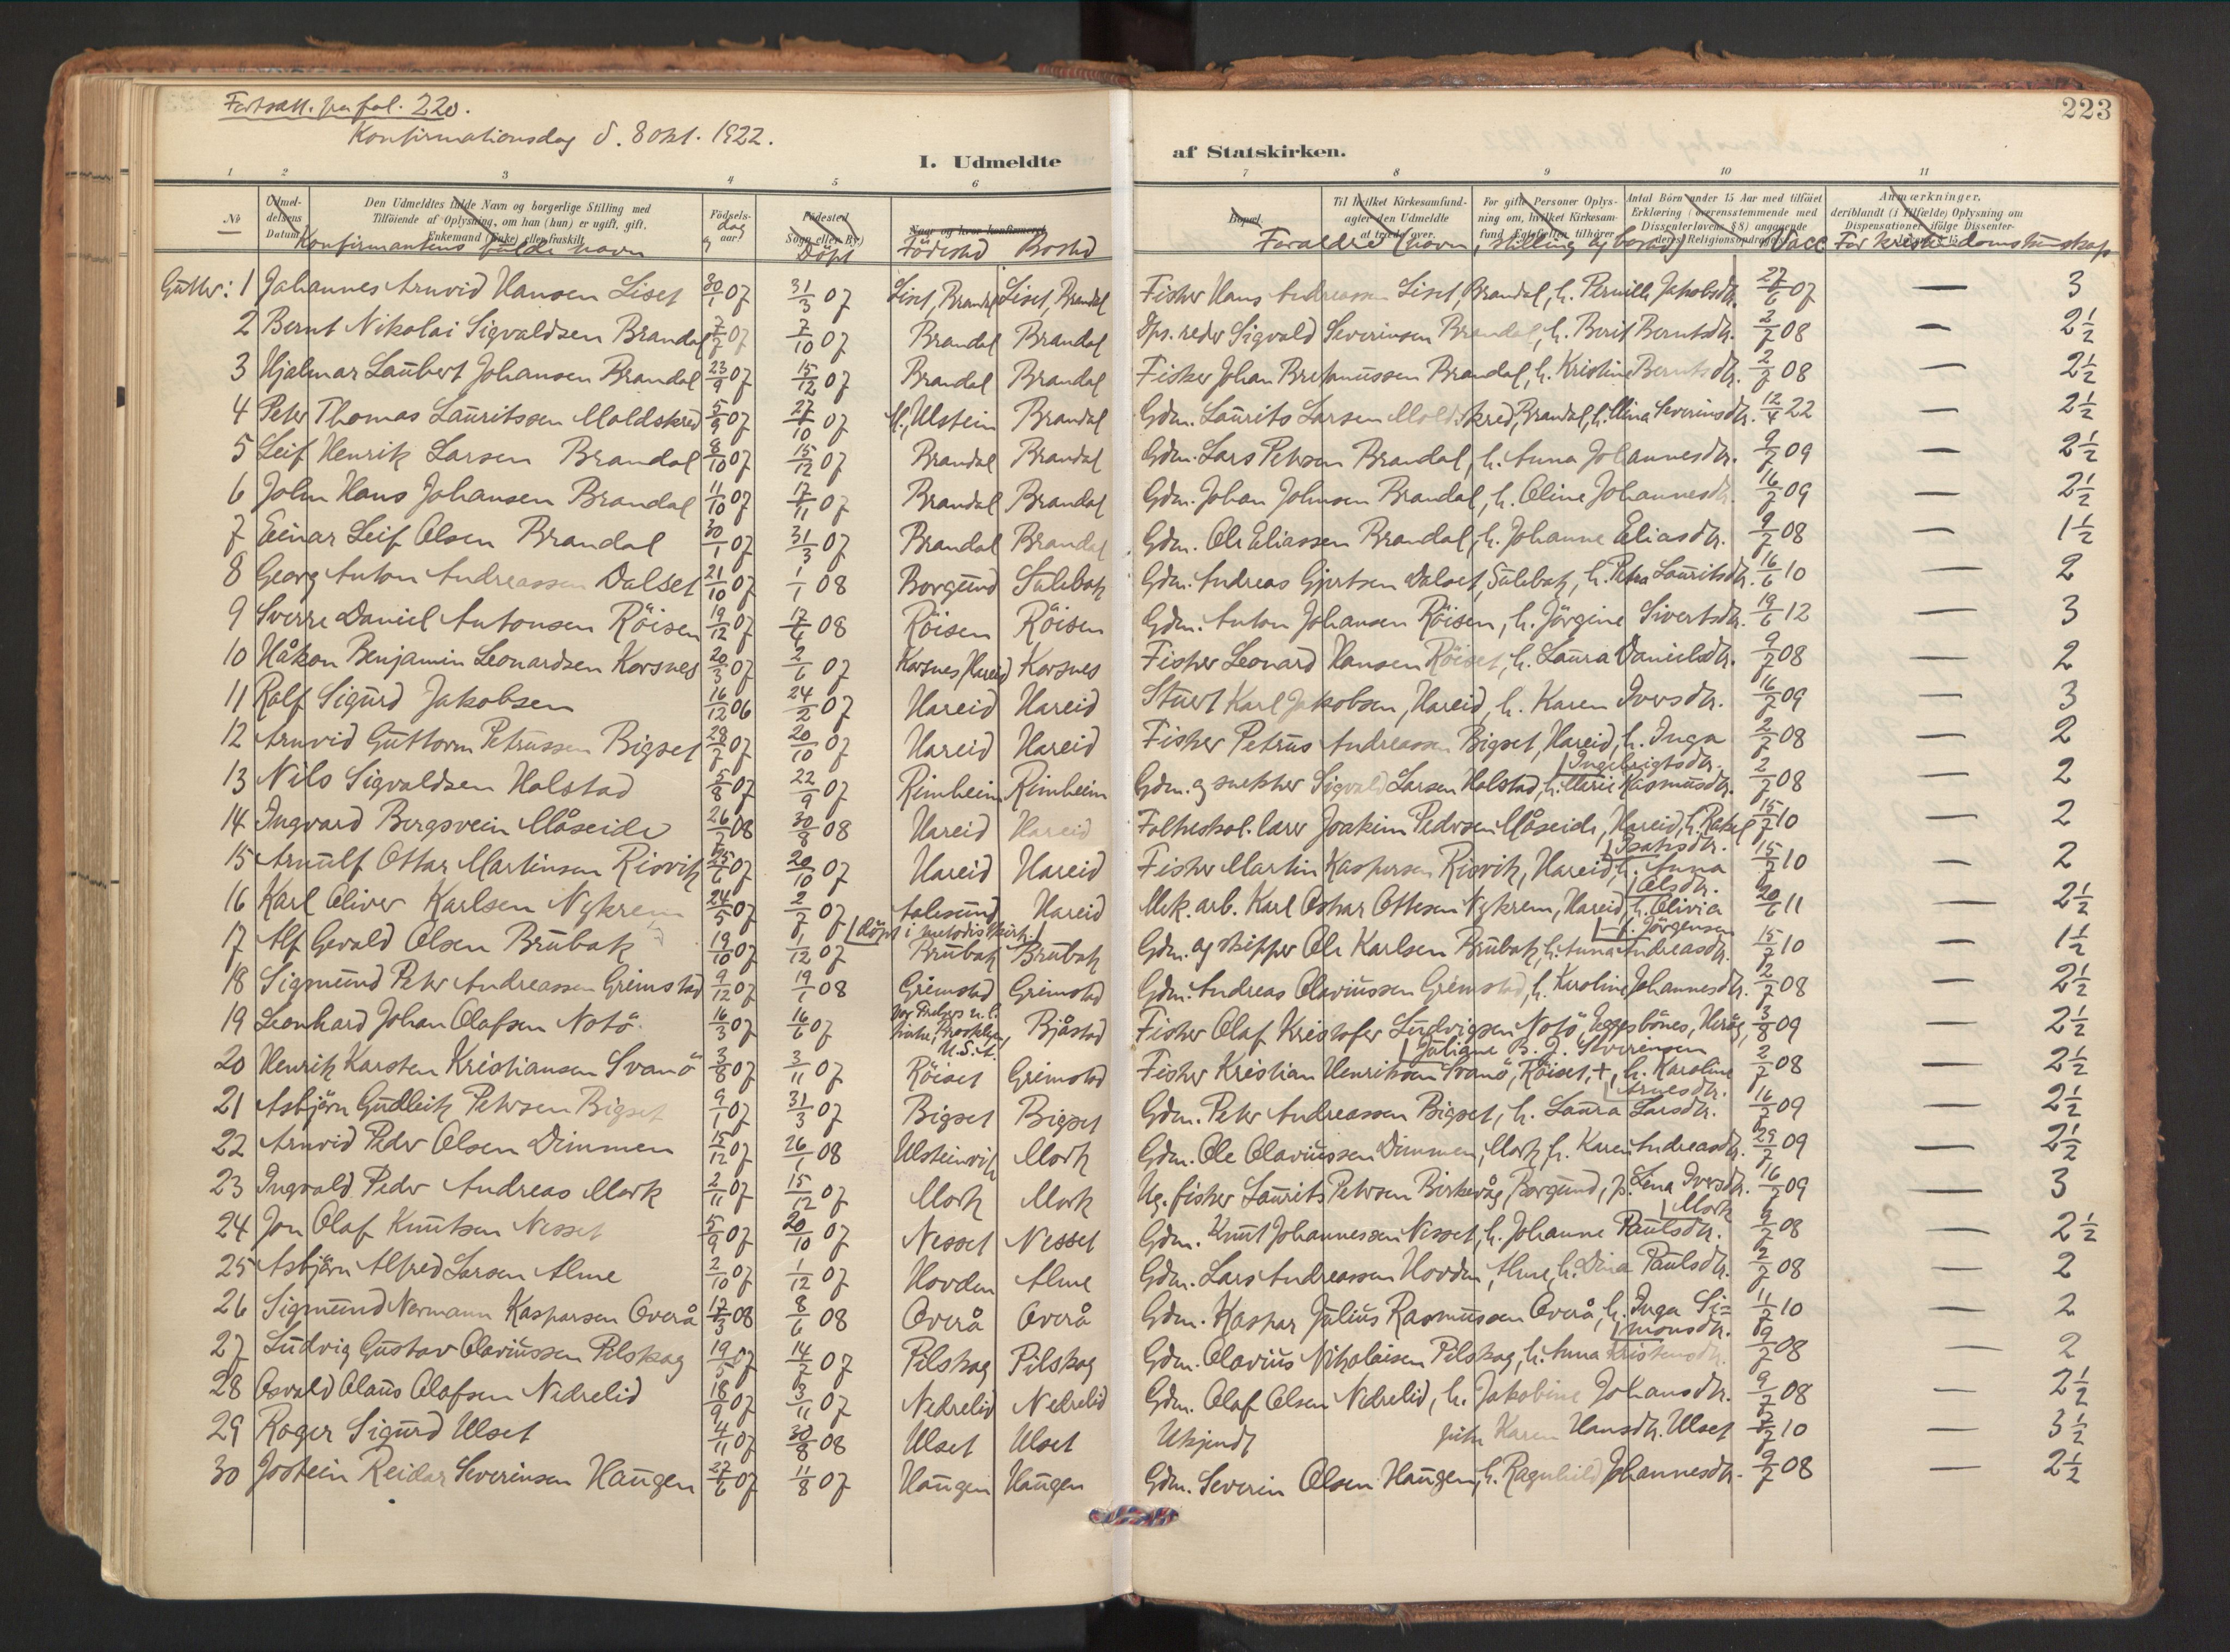 Fortsatt. fra fol. 220.
Konfirmationsdag d. 8 okt. 1922.
223
I. Udmeldte af Statskirken.
1 2 3 4 5 6 7 8 9 10 11
№ Udmeldelsens Datum. Den Udmeldtes fulde Navn og borgerlige Stilling med Tilföiende af Oplysning, om han (hun) er ugift, gift, Enkemand (Enke) eller fraskilt. Födselsdag og aar. Födested (Sogn eller By) Naar og hvor konfirmeret. Bopæl. Til hvilket Kirkesamfund agter den Udmeldte at træde over. For gifte Personer Oplysning om, hvilket Kirkesamfund Ægtefællen tilhører. Antal Börn under 15 Aar med tilföiet Erklæring (overensstemmende med Dissenterlovens § 8) angaaende deres Religionsopdragelse. Anmærkninger, deriblandt (i Tilfælde) Oplysning om Dispensationer ifölge Dissenterlovens § 15.
Konfirmantens fulde navn Döpt Födested Bosted Foreldre (navn, stilling og bosted) Vacc. For kristendomskunskap
Gutter: 1 Johannes Arnvid Hansen Liset 30/1 07 31/3 07 Liset, Brandal Liset, Brandal Fisker Hans Andreassen Liset, Brandal, h. Pernille Jakobsdtr. 27/6 07 — 3
2 Bernt Nikolai Sigvaldsen Brandal 7/7 07 7/10 07 Brandal Brandal Dps.reder Sigvald Severinsen Brandal, h. Berit Berntsdtr. 2/7 08 — 2½
3 Hjalmar Laubert Johansen Brandal 23/9 07 15/12 07 Brandal Brandal Fisker Johan Brehmussen Brandal, h. Kristine Berntsdtr. 2/7 08 — 2½
4 Peter Thomas Lauritssen Moldskred 5/9 07 27/10 07 M., Ulstein Brandal Gdm. Laurits Larsen Moldskred, Brandal, h. Mina Severinsdtr. 12/4 22 — 2½
5 Leif Henrik Larsen Brandal 8/10 07 15/12 07 Brandal Brandal Gdm. Lars Petersen Brandal, h. Anna Johannesdtr. 9/7 09 — 2½
6 John Hans Johansen Brandal 11/10 07 17/11 07 Brandal Brandal Gdm. Johan Johnsen Brandal, h. Oline Johannesdtr. 16/7 09 — 2½
7 Einar Leif Olsen Brandal 30/1 07 31/3 07 Brandal Brandal Gdm. Ole Eliassen Brandal, h. Johanne Eliasdtr. 9/7 08 — 1½
8 Georg Anton Andreassen Dalset 21/10 07 1/1 08 Borgund Sulebak Gdm. Andreas Gjertsen Dalset, Sulebak, h. Petra Lauritsdtr. 16/6 10 — 2
9 Sverre Daniel Antonsen Röisen 19/12 07 17/4 08 Röisen Röisen Gdm. Anton Johansen Röisen, h. Jörgine Sivertsdtr. 19/6 12 — 3
10 Håkon Benjamin Leonardsen Korsnes 20/3 07 2/6 07 Korsnes, Hareid Korsnes Fisker Leonard Hansen Röiset, h. Laura Danielsdtr. 9/7 08 — 2
11 Rolf Sigurd Jakobsen 16/12 06 24/2 07 Hareid Hareid Stuert Karl Jakobsen, Hareid, h. Karen Iversdtr. 16/7 09 — 3
12 Arnvid Guttorm Petrussen Bigset 28/7 07 20/10 07 Hareid Hareid Fisker Petrus Andreassen Bigset, Hareid, h. Inga 2/7 08 — 2
Ingebrigtsdtr.
13 Nils Sigvaldsen Holstad 5/8 07 22/9 07 Rimheim Rimheim Gdm. og snekker Sigvald Larsen Holstad, h. Marie Rasmusdtr. 2/7 08 — 2
14 Ingvard Bergsvein Måseide 26/7 08 30/8 08 Hareid Hareid Folkeskol.lærer Joakim Pedersen Måseide, Hareid, h. Rakel 15/7 10 — 2
Isaksdtr.
15 Arnulf Ottar Martinsen Risvik 25/6 07 20/10 07 Hareid Hareid Fisker Martin Kaspersen Risvik, Hareid, h. Anna 15/7 10 — 2
Olsdtr.
16 Karl Oliver Karlsen Nykrem 24/5 07 2/7 07 Aalesund Hareid Mek. arb. Karl Oskar Ottesen Nykrem, Hareid, h. Olivia 20/6 11 — 2½
döpt i metodistkirk. f. Jörgensen
17 Alf Gerald Olsen Brubak 19/10 07 1/12 07 Brubak Brubak Gdm. og skipper Ole Karlsen Brubak, h. Anna Andreasdtr. 15/7 10 — 1½
18 Sigmund Peter Andreassen Grimstad 9/12 07 19/1 08 Grimstad Grimstad Gdm. Andreas Olaviussen Grimstad, h. Karoline Johannesdtr. 2/7 08 — 2½
19 Leonhard Johan Olafsen Notö 16/3 07 16/6 07 Brooklyn, U.S.A. Bjåstad Fisker Olaf Kristofer Ludvigsen Notö, Eggesbönes, Heröy, 3/8 09 — 2½
Juliane B. J. Severinsen
20 Henrik Karsten Kristiansen Svanö 3/8 07 3/11 07 Röiset Grimstad Fisker Kristian Henriksen Svanö, Röiset, +, h. Karoline 2/7 08 — 2½
Arnesdtr.
21 Asbjörn Gudleik Petersen Bigset 9/1 07 31/3 07 Bigset Bigset Gdm. Peter Andreassen Bigset, h. Laura Larsdtr. 16/7 09 — 2½
22 Arnvid Peder Olsen Dimmen 15/12 07 26/1 08 Ulsteinvik Mork Gdm. Ole Olaviussen Dimmen, Mork, h. Karen Andreasdtr. 29/7 09 — 2½
23 Ingvald Peder Andreas Mork 2/11 07 15/12 07 Mork Mork Ug. fisker Laurits Petersen Birkevåg, Borgund, p. Lena Iversdtr. 16/7 09 — 3
Mork
24 Jon Olaf Knutsen Nesset 5/9 07 20/10 07 Nesset Nesset Gdm. Knut Johannessen Nesset, h. Johanne Paulsdtr. 9/7 08 — 2½
25 Asbjörn Alfred Larsen Alme 2/10 07 1/12 07 Hovden Alme Gdm. Lars Andreassen Hovden, Alme, h. Dina Paulsdtr. 2/7 08 — 2
26 Sigmund Normann Kasparsen Overå 17/3 08 8/6 08 Overå Overå Gdm. Kaspar Julius Rasmussen Overå, h. Inga Si= 11/7 10 — 2
monsdtr.
27 Ludvig Gustav Olaviussen Pilskog 19/5 07 14/7 07 Pilskog Pilskog Gdm. Olavius Nikolaisen Pilskog, h. Anna Kristensdtr. 9/7 08 — 2
28 Osvald Olaus Olafsen Nedrelid 18/9 07 3/11 07 Nedrelid Nedrelid Gdm. Olaf Olsen Nedrelid, h. Jakobine Johansdtr. 9/7 08 — 2½
29 Roger Sigurd Ulset 4/11 07 30/8 08 Ulset Ulset Ukjendt pike Karen Hansdtr. Ulset 7/7 10 — 3½
30 Jostein Reidar Severinsen Haugen 27/6 07 11/8 07 Haugen Haugen Gdm. Severin Olsen Haugen, h. Ragnhild Johannesdtr. 9/7 08 — 2½